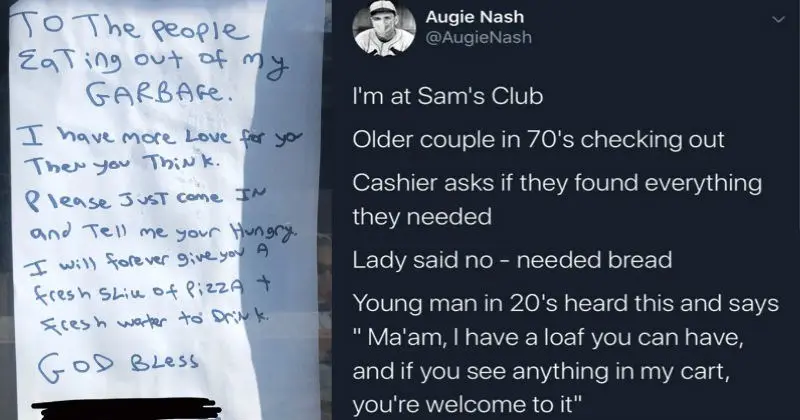 TO THE PEOPLE
EATing out of my
GARBAGE.
I have more Love for you
Then you THINK.
Please JUST come IN
and Tell me your Hungry.
I will forever give you A
fresh SLice of PizzA +
fresh water to Drink.
GOD BLESS
Augie Nash
@AugieNash
I'm at Sam's Club
Older couple in 70's checking out
Cashier asks if they found everything
they needed
Lady said no - needed bread
Young man in 20's heard this and says
" Ma'am, I have a loaf you can have,
and if you see anything in my cart,
you're welcome to it"